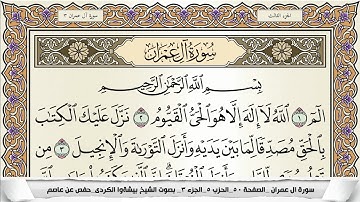 سورة آل عمران ٣
الجزء الثالث
سُورَةُ آلِ عِمْرَانَ
بِسْمِ اللَّهِ الرَّحْمَٰنِ الرَّحِيمِ
الٓمٓ ١ اللَّهُ لَا إِلَٰهَ إِلَّا هُوَ الْحَيُّ الْقَيُّومُ ٢ نَزَّلَ عَلَيْكَ الْكِتَابَ
بِالْحَقِّ مُصَدِّقًا لِّمَا بَيْنَ يَدَيْهِ وَأَنزَلَ التَّوْرَىٰةَ وَالْإِنجِيلَ ٣ مِن
سورة ال عمران _الصفحة ٥٠_الحزب ٥_الجزء ٣_ بصوت الشيخ بيشةوا الكردى_ حفص عن عاصم